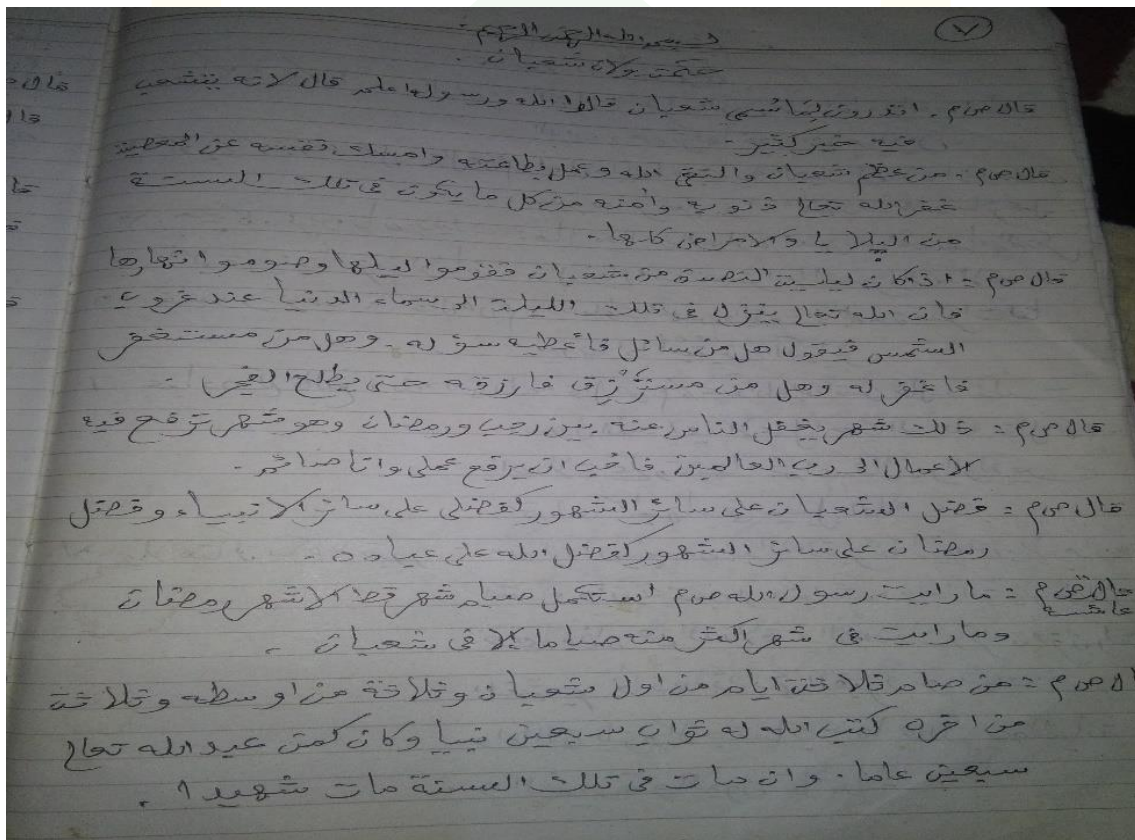 ٧
بسم الله الرحمن الرحيم =
حكمت بولان شعبان .
قال ص م . اتدرون لما سمي شعبان قالوا الله ورسوله اعلم قال لانه ينشعب
فيه خير كثير -
قال ص م = من عظم شعبان والتقى الله وعمل بطاعته وامسك نفسه عن المعصية
غفر الله تعالى ذنوبه وأمنه من كل ما يكون في تلك السنة
من البلايا والامراض كلها -
قال ص م = اذا كان ليلة النصف من شعبان فقوموا ليلها وصوموا نهارها
فان الله تعالى ينزل في تلك الليلة الى سماء الدنيا عند غروب
الشمس فيقول هل من سائل فأعطيه سؤله - وهل من مستغفر
فاغفر له وهل من مسترزق فارزقه حتى يطلع الفجر -
قال ص م = ذلك شهر يغفل الناس عنه بين رجب ورمضان وهو شهر ترفع فيه
الأعمال الى رب العالمين فاحب ان يرفع عملي وانا صائم -
قال ص م = فضل الشعبان على سائر الشهور كفضلي على سائر الانبياء وفضل
رمضان على سائر الشهور كفضل الله على عباده -
قال ص م = ما رايت رسول الله ص م استكمل صيام شهر قط الا شهر رمضان
عائشه
وما رايت في شهر اكثر منه صياما الا في شعبان -
ال ص م = من صام ثلاثة ايام من اول شعبان وثلاثة من اوسطه وثلاثة
من اخره كتب الله له ثواب سبعين نبيا وكان كمن عبد الله تعالى
سبعين عاما . وان مات في تلك السنة مات شهيدا .